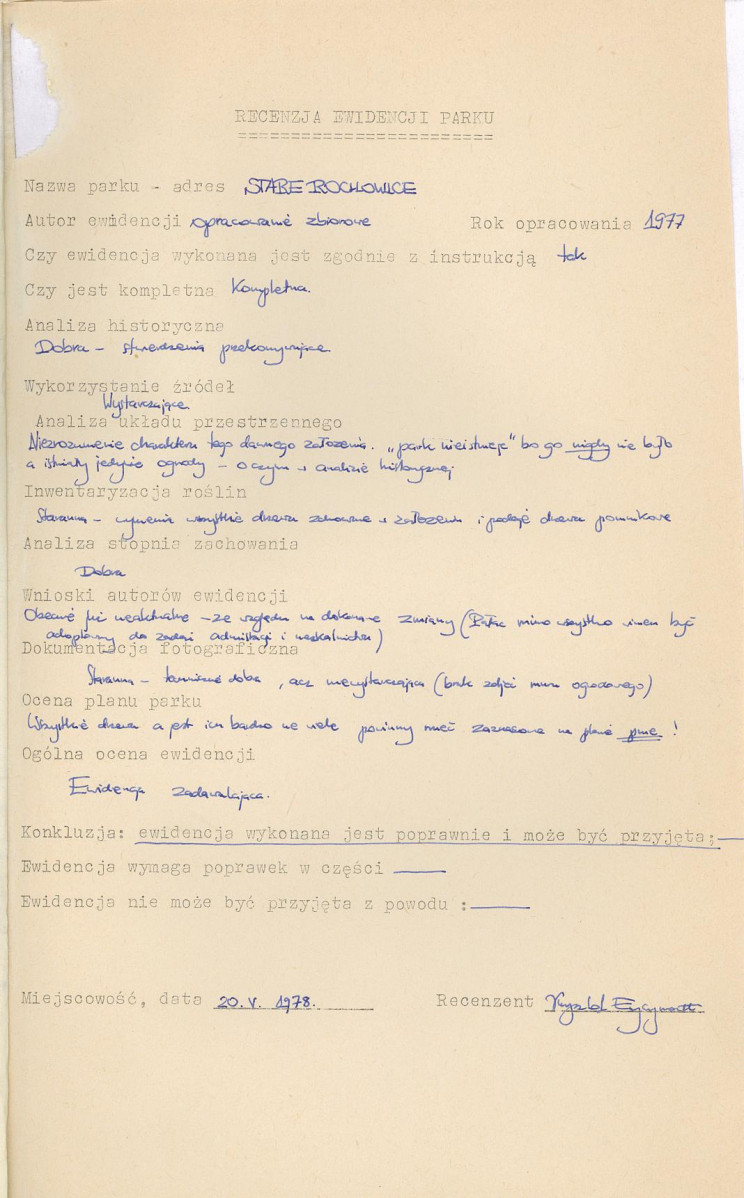 RECENZJA EWIDENCJI PARKU
========================
Nazwa parku - adres STARE ROCHOWICE
Autor ewidencji opracowanie zbiorowe Rok opracowania 1977
Czy ewidencja wykonana jest zgodnie z instrukcją tak
Czy jest kompletna Kompletna.
Analiza historyczna
Dobra - stwierdzenia przekonywujące
Wykorzystanie źródeł
Wystarczające
Analiza układu przestrzennego
Niezrozumienie charakteru tego dawnego założenia. „park nieistnieje" bo go nigdy nie było
a istniały jedynie ogrody - o czym w analizie historycznej
Inwentaryzacja roślin
Staranna - wymienia wszystkie drzewa zachowane w założeniu i podaje drzewa pomnikowe
Analiza stopnia zachowania
Dobra
Wnioski autorów ewidencji
Obecnie już nieaktualne - ze względu na dokonane zmiany (Pałac mimo wszystko winien być
adoptowany do zadań administracji i mieszkalnictwa)
Dokumentacja fotograficzna
Staranna - dobra, acz niewystarczająca (brak zdjęć muru ogrodowego)
Ocena planu parku
Wszystkie drzewa a jest ich bardzo nie wiele powinny mieć zaznaczone na planie pnie!
Ogólna ocena ewidencji
Ewidencja zadawalająca.
Konkluzja: ewidencja wykonana jest poprawnie i może być przyjęta;
Ewidencja wymaga poprawek w części
Ewidencja nie może być przyjęta z powodu :
Miejscowość, data 20.V.1978. Recenzent